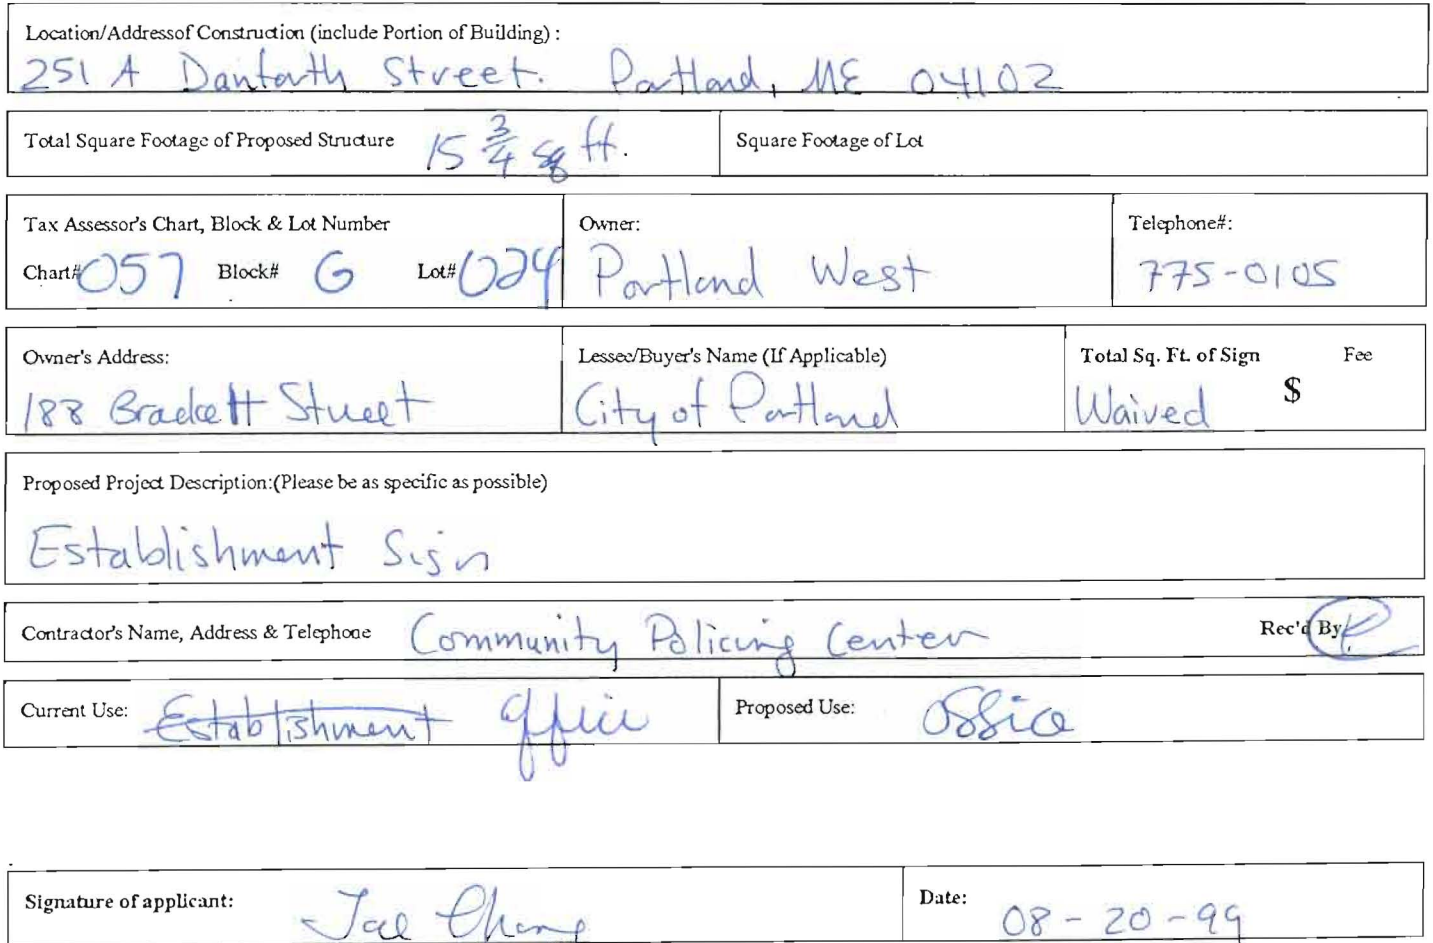 Location/Addressof Construction (include Portion of Building) :
251 A Danforth Street. Portland, ME 04102
Total Square Footage of Proposed Structure 15 3/4 sq ft.
Square Footage of Lot
Tax Assessor's Chart, Block & Lot Number
Chart# 057 Block# G Lot# 024
Owner:
Portland West
Telephone#:
775-0105
Owner's Address:
188 Brackett Street
Lessee/Buyer's Name (If Applicable)
City of Portland
Total Sq. Ft. of Sign Fee
Waived $
Proposed Project Description:(Please be as specific as possible)
Establishment Sign
Contractor's Name, Address & Telephone Community Policing Center Rec'd By
Current Use: Establishment office
Proposed Use: Office
Signature of applicant: Jae Chang
Date: 08-20-99